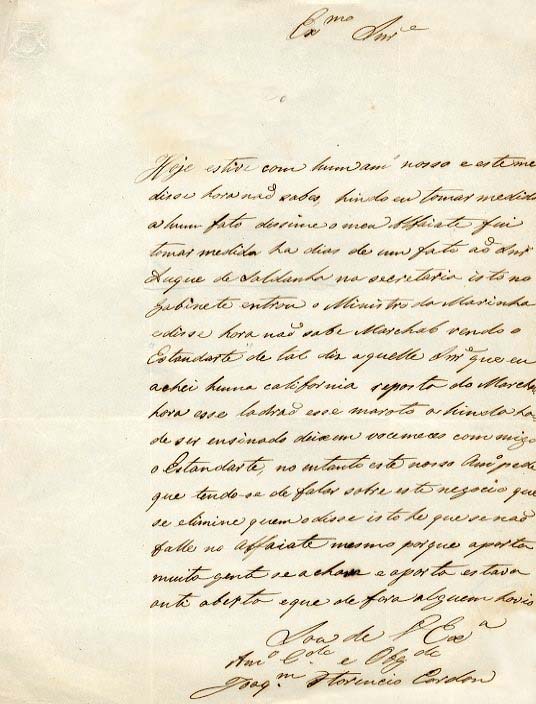 Ex.mo Snr.e
Hoje estive com hum am.º nosso e este me
disse hora naõ sabes, hindo eu tomar medida
a hum fato dissime o meu Alfaiate fui
tomar medida ha dias de um fato aõ Snr
Duque de Saldanha na secretaria isto no
Gabinete entrou o Ministro da Marinha
edisse hora naõ sabe Marchal vendo o
Estandarte de tal dia aquelle Snr. que eu
achei huma california reposta do Marcha
hora esse ladraõ esse maroto a hinda ha
de ser ensinado deixem vocemeces com migo
o Estandarte, no entanto este nosso Am.º pede
que tendo-se de falar sobre este negocio que
se elimine quem o disse isto he que se naõ
falle no Alfaiate mesmo porque aporta
muita gente se acham e aporta estava
aberta eque de fora alguem
Sou de V. Ex.a
Am.º C.do e Obg.do
Joaq.m Florencio Cordon